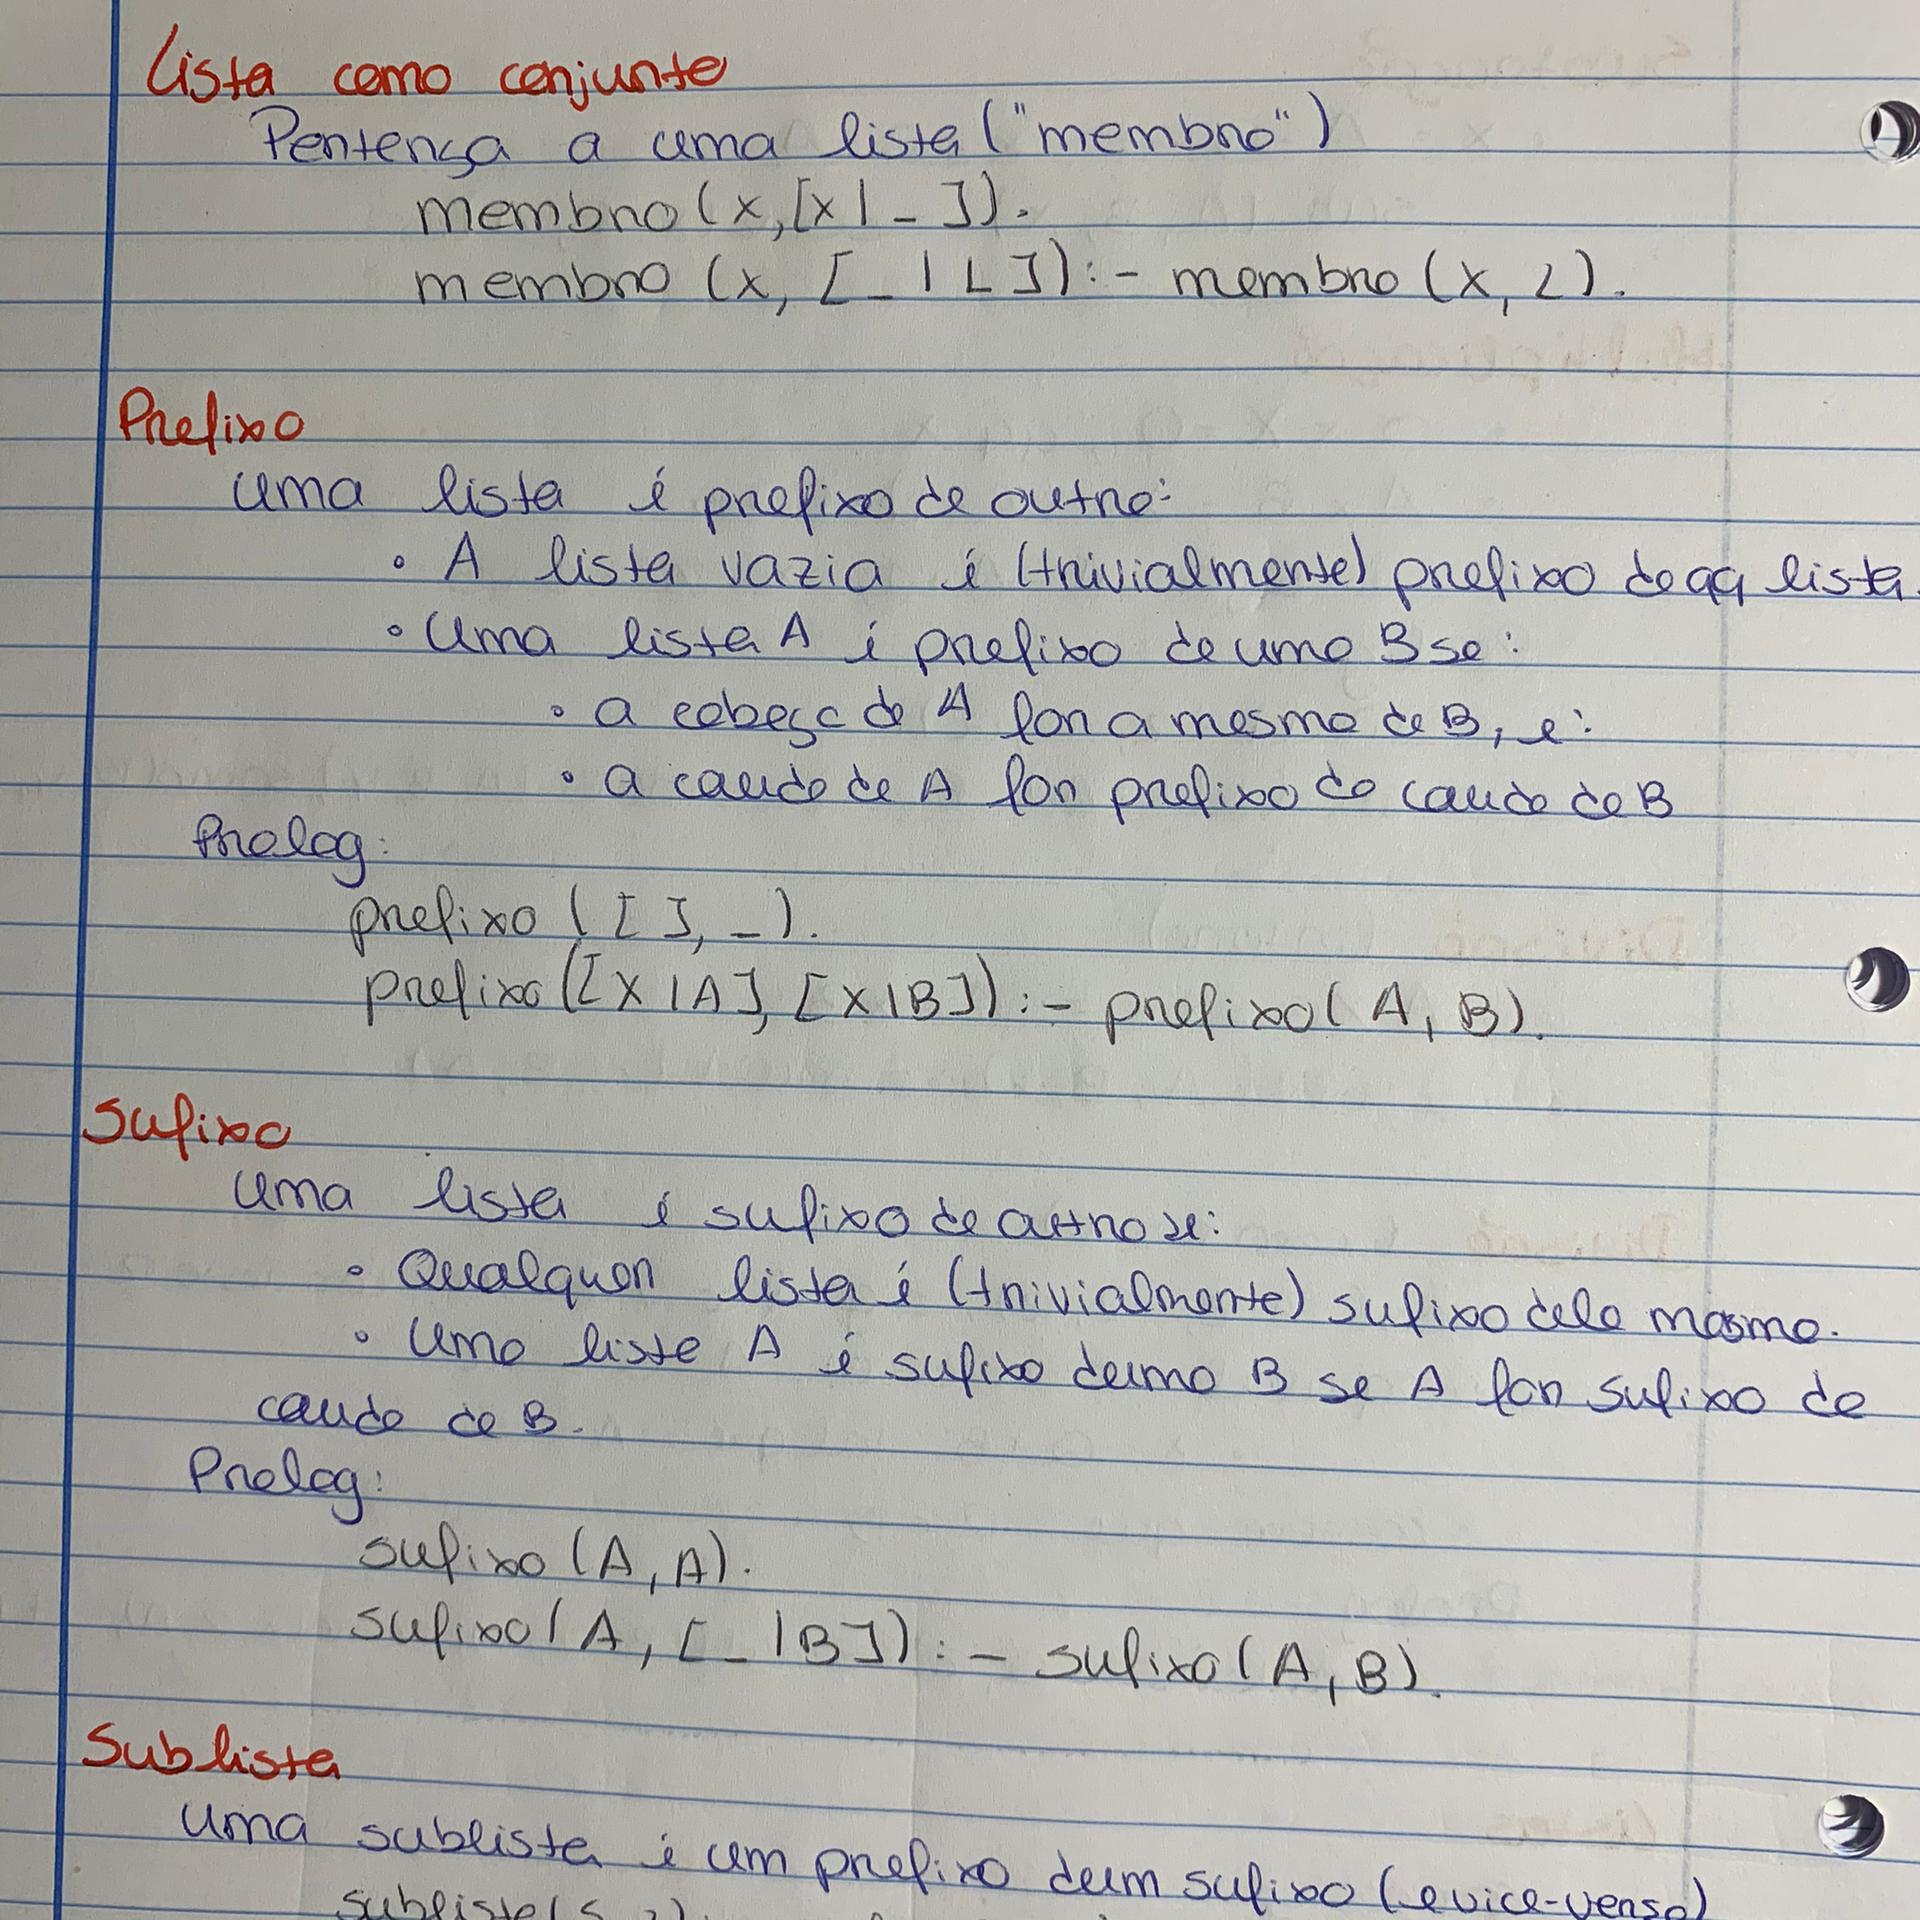 Lista como conjunto
Pertença a uma lista ("membro")
membro (X,[X|_]).
membro (X, [_|L]):- membro (X, L).
Prefixo
Uma lista é prefixo de outra:
• A lista vazia é (trivialmente) prefixo de qq lista.
• Uma lista A é prefixo de uma B se:
• a cabeça de A for a mesma de B, e:
• a cauda de A for prefixo da cauda de B
Prolog:
prefixo ([ ], _).
prefixo ([X|A], [X|B]):- prefixo( A, B).
Sufixo
Uma lista é sufixo de outra se:
• Qualquer lista é (trivialmente) sufixo dela mesma.
• Uma lista A é sufixo duma B se A for sufixo da
cauda de B.
Prolog:
sufixo (A, A).
sufixo( A, [_|B]):- sufixo( A, B).
Sublista
Uma sublista é um prefixo dum sufixo (e vice-versa)
sublista(S,